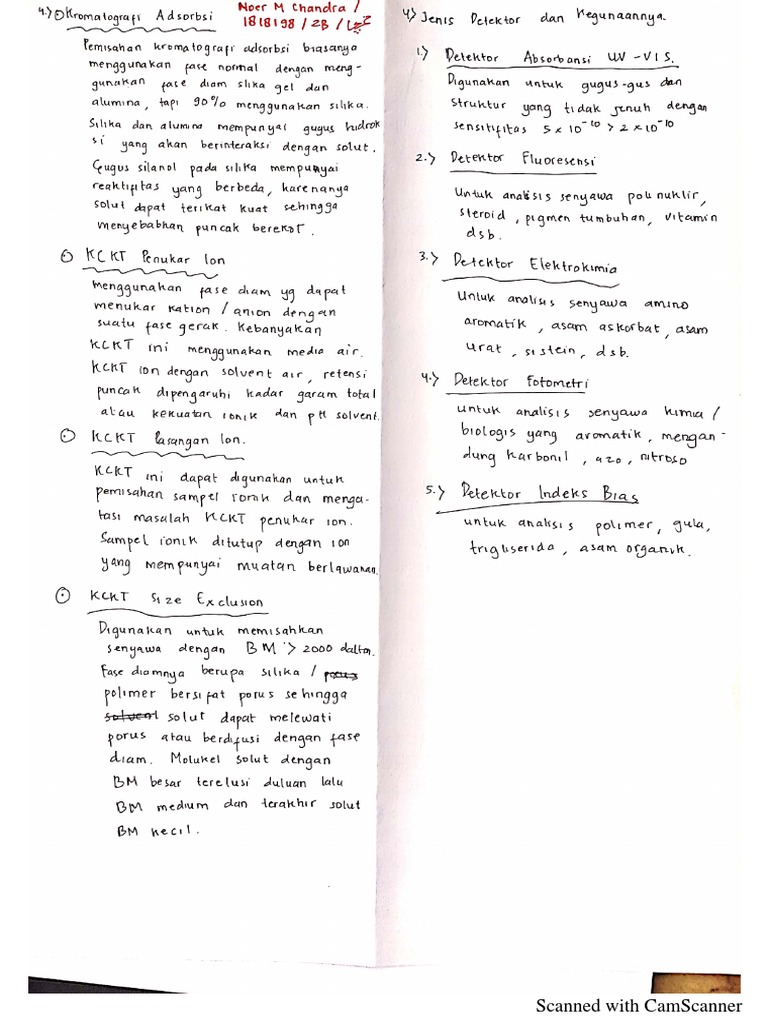 4.) ⊙ Kromatografi Adsorbsi
Noer M Chandra /
1818198 / 2B /
Pemisahan kromatografi adsorbsi biasanya
menggunakan fase normal dengan meng-
gunakan fase diam slika gel dan
alumina, tapi 90% menggunakan silika.
Silika dan alumina mempunyai gugus hidrok
si yang akan berinteraksi dengan solut.
Gugus silanol pada silika mempunyai
reaktifitas yang berbeda, karenanya
solut dapat terikat kuat sehingga
menyebabkan puncak berekor.
⊙ KCKT Penukar Ion
menggunakan fase diam yg dapat
menukar kation / anion dengan
suatu fase gerak. Kebanyakan
KCKT ini menggunakan media air.
KCKT ion dengan solvent air, retensi
puncak dipengaruhi kadar garam total
atau kekuatan ionik dan pH solvent.
⊙ KCKT Pasangan Ion.
KCKT ini dapat digunakan untuk
pemisahan sampel ionik dan menga-
tasi masalah KCKT penukar ion.
Sampel ionik ditutup dengan ion
yang mempunyai muatan berlawanan.
⊙ KCKT Size Exclusion
Digunakan untuk memisahkan
senyawa dengan BM > 2000 dalton.
Fase diamnya berupa silika / porus
polimer bersifat porus sehingga
solvent solut dapat melewati
porus atau berdifusi dengan fase
diam. Molukel solut dengan
BM besar terelusi duluan lalu
BM medium dan terakhir solut
BM kecil.
4) Jenis Detektor dan Kegunaannya.
1.) Detektor Absorbansi UV-VIS.
Digunakan untuk gugus-gus dan
struktur yang tidak jenuh dengan
sensitifitas 5 x 10⁻¹⁰ > 2 x 10⁻¹⁰
2.) Detektor Fluoresensi
Untuk analisis senyawa polinuklir,
steroid, pigmen tumbuhan, vitamin
dsb.
3.) Detektor Elektrokimia
Untuk analisis senyawa amino
aromatik, asam askorbat, asam
urat, sistein, dsb.
4.) Detektor Fotometri
untuk analisis senyawa kimia /
biologis yang aromatik, mengan-
dung karbonil, azo, nitroso
5.) Detektor Indeks Bias
untuk analisis polimer, gula,
trigliserida, asam organik.
Scanned with CamScanner